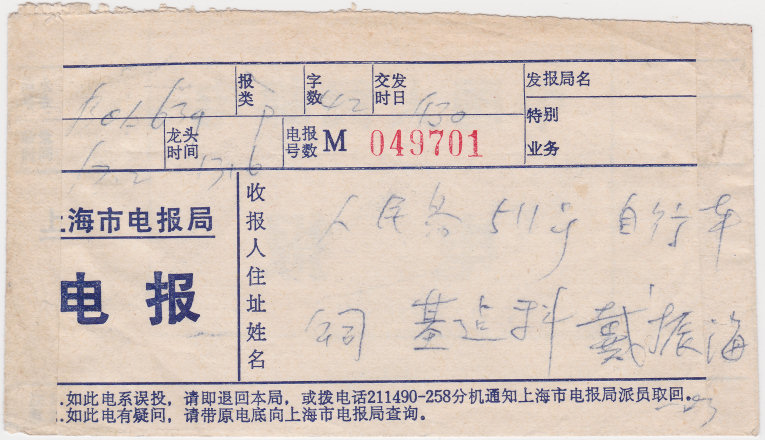 报类 P 字数 42 交发时日 130 发报局名
特别业务
龙头时间 1346 电报号数 M 049701
上海市电报局
电报
收报人住址姓名
人民路511号自行车
公司 基建科 戴振海
.如此电系误投，请即退回本局，或拨电话211490-258分机通知上海市电报局派员取回。
.如此电有疑问，请带原电底向上海市电报局查询。